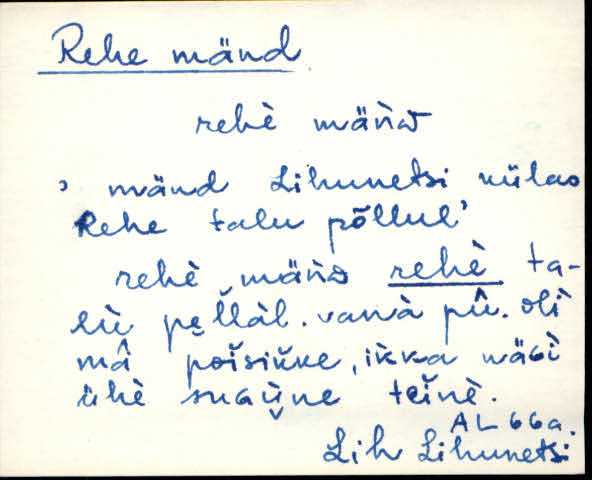 Rehe mänd
rehè mäǹᴅ
, mänd Lihunetsi külas
Rehe talu põllul'
rehè mäǹᴅ rehè ta-
lù pe̮l̆l̆àl. vanà pû. olì
mâ poi̬sik̆ke, ik̆ka näɢì
ühè suɢù̬ne tei̬nè.
AL 66a.
Lih Lihunetsi